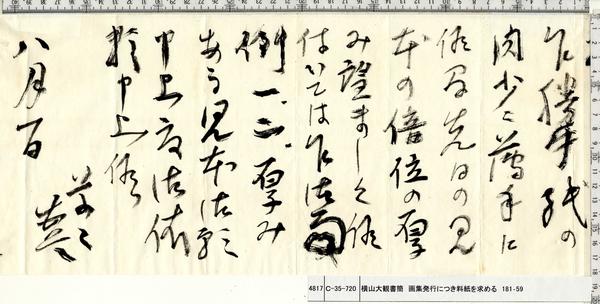 乍勝手紙の
肉少々薄手に
候間先日の見
本の倍位の厚
み望ましく候
付いては乍御面
倒一、二、厚み
ある見本御願
申上度御依
頼申上候
草々
八月一日
4817 C-35-720 横山大観書簡 画集発行につき料紙を求める 181-59